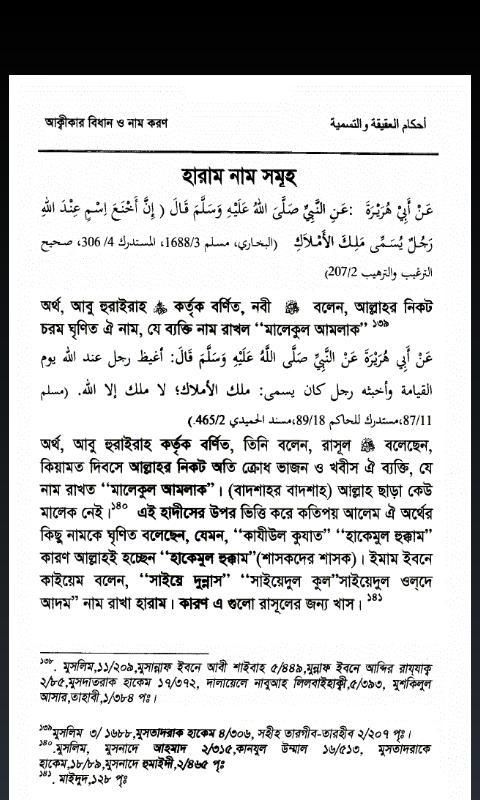 আক্বীকার বিধান ও নাম করণ أحكام العقيقة والتسمية
হারাম নাম সমূহ
عَنْ أَبِيْ هُرَيْرَةَ :عَنِ النَّبِيِّ صَلَّى اللهُ عَلَيْهِ وَسَلَّمَ قَالَ ( إِنَّ أَخْنَعَ اِسْمٍ عِنْدَ اللهِ
رَجُلٌ يُسَمَّى مَلِكَ الأَمْلاَكِ (البخاري، مسلم 1688/3، المستدرك 4/ 306، صحيح
الترغيب والترهيب 207/2)
অর্থ, আবু হুরাইরাহ কর্তৃক বর্ণিত, নবী ﷺ বলেন, আল্লাহর নিকট
চরম ঘৃণিত ঐ নাম, যে ব্যক্তি নাম রাখল “মালেকুল আমলাক” ১৩৯
عَنْ أَبِي هُرَيْرَةَ عَنْ النَّبِيِّ صَلَّى اللَّهُ عَلَيْهِ وَسَلَّمَ قَالَ: أغيظ رجل عند الله يوم
القيامة وأخبثه رجل كان يسمى: ملك الأملاك؛ لا ملك إلا الله. (مسلم
87/11،مستدرك للحاكم 89/18،مسند الحميدي 465/2.)
অর্থ, আবু হুরাইরাহ কর্তৃক বর্ণিত, তিনি বলেন, রাসূল ﷺ বলেছেন,
কিয়ামত দিবসে আল্লাহর নিকট অতি ক্রোধ ভাজন ও খবীস ঐ ব্যক্তি, যে
নাম রাখত “মালেকুল আমলাক”। (বাদশাহর বাদশাহ) আল্লাহ ছাড়া কেউ
মালেক নেই।১৪০ এই হাদীসের উপর ভিত্তি করে কতিপয় আলেম ঐ অর্থের
কিছু নামকে ঘৃণিত বলেছেন, যেমন, “কাযীউল কুযাত” “হাকেমুল হুক্কাম”
কারণ আল্লাহই হচ্ছেন “হাকেমুল হুক্কাম”(শাসকদের শাসক)। ইমাম ইবনে
কাইয়েম বলেন, “সাইয়ে দুন্নাস” “সাইয়েদুল কুল”সাইয়েদুল ওল্দে
আদম” নাম রাখা হারাম। কারণ এ গুলো রাসূলের জন্য খাস।১৪১
১৩৮. মুসলিম,১১/২০৯,মুসান্নাফ ইবনে আবী শাইবাহ ৫/৪৪৯,মুন্নাফ ইবনে আব্দির রাযযাক্ব
২/৮৫,মুসদাতরাক হাকেম ১৭/৩৭২, দালায়েলে নাবুঅাহ লিলবাইহাক্বী,৫/৩৯৩, মুশকিলুল
আসার,তাহাবী,১/৩৮৪ পৃঃ।
১৩৯মুসলিম ৩/ ১৬৮৮,মুসতাদরাক হাকেম ৪/৩০৬, সহীহ তারগীব-তারহীব ২/২০৭ পৃঃ।
১৪০.মুসলিম, মুসনাদে আহমাদ ২/৩১৫,কানযুল উম্মাল ১৬/৫১৩, মুসতাদরাকে
হাকেম,১৮/৮৯,মুসনাদে হুমাইদী,২/৪৬৫ পৃঃ
১৪১. মাইদুদ,১২৮ পৃঃ